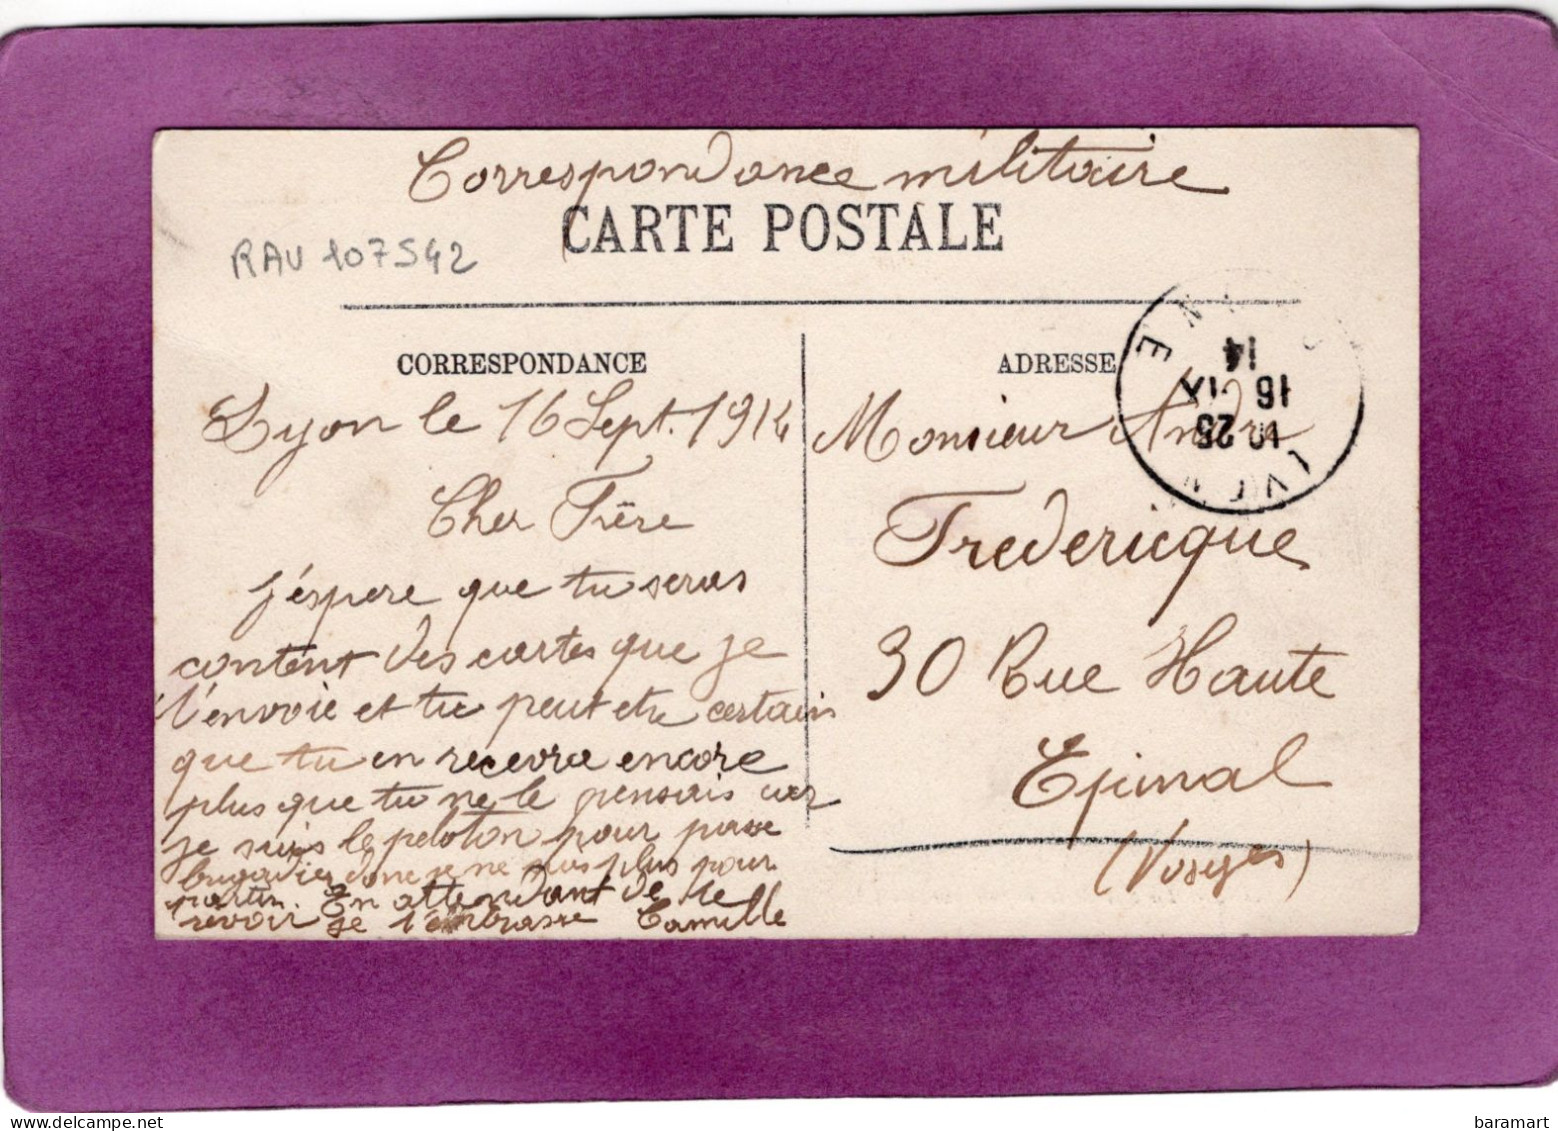 Correspondance militaire
CARTE POSTALE
RAV 107542
CORRESPONDANCE
Lyon le 16 Sept. 1914
Cher Frère
j'éspere que tu seras
content des cartes que je
t'envoie et tu peut etre certain
que tu en recevra encore
plus que tu ne le pensais car
je suis le peloton pour passe
brigadier donc je ne suis plus pour
partir. En attendant de te
revoir je t'embrasse Camille
ADRESSE
Monsieur André
Fredericque
30 Rue Haute
Epinal
(Vosges)
10 25
16 IX
14
delcampe.net
baramart